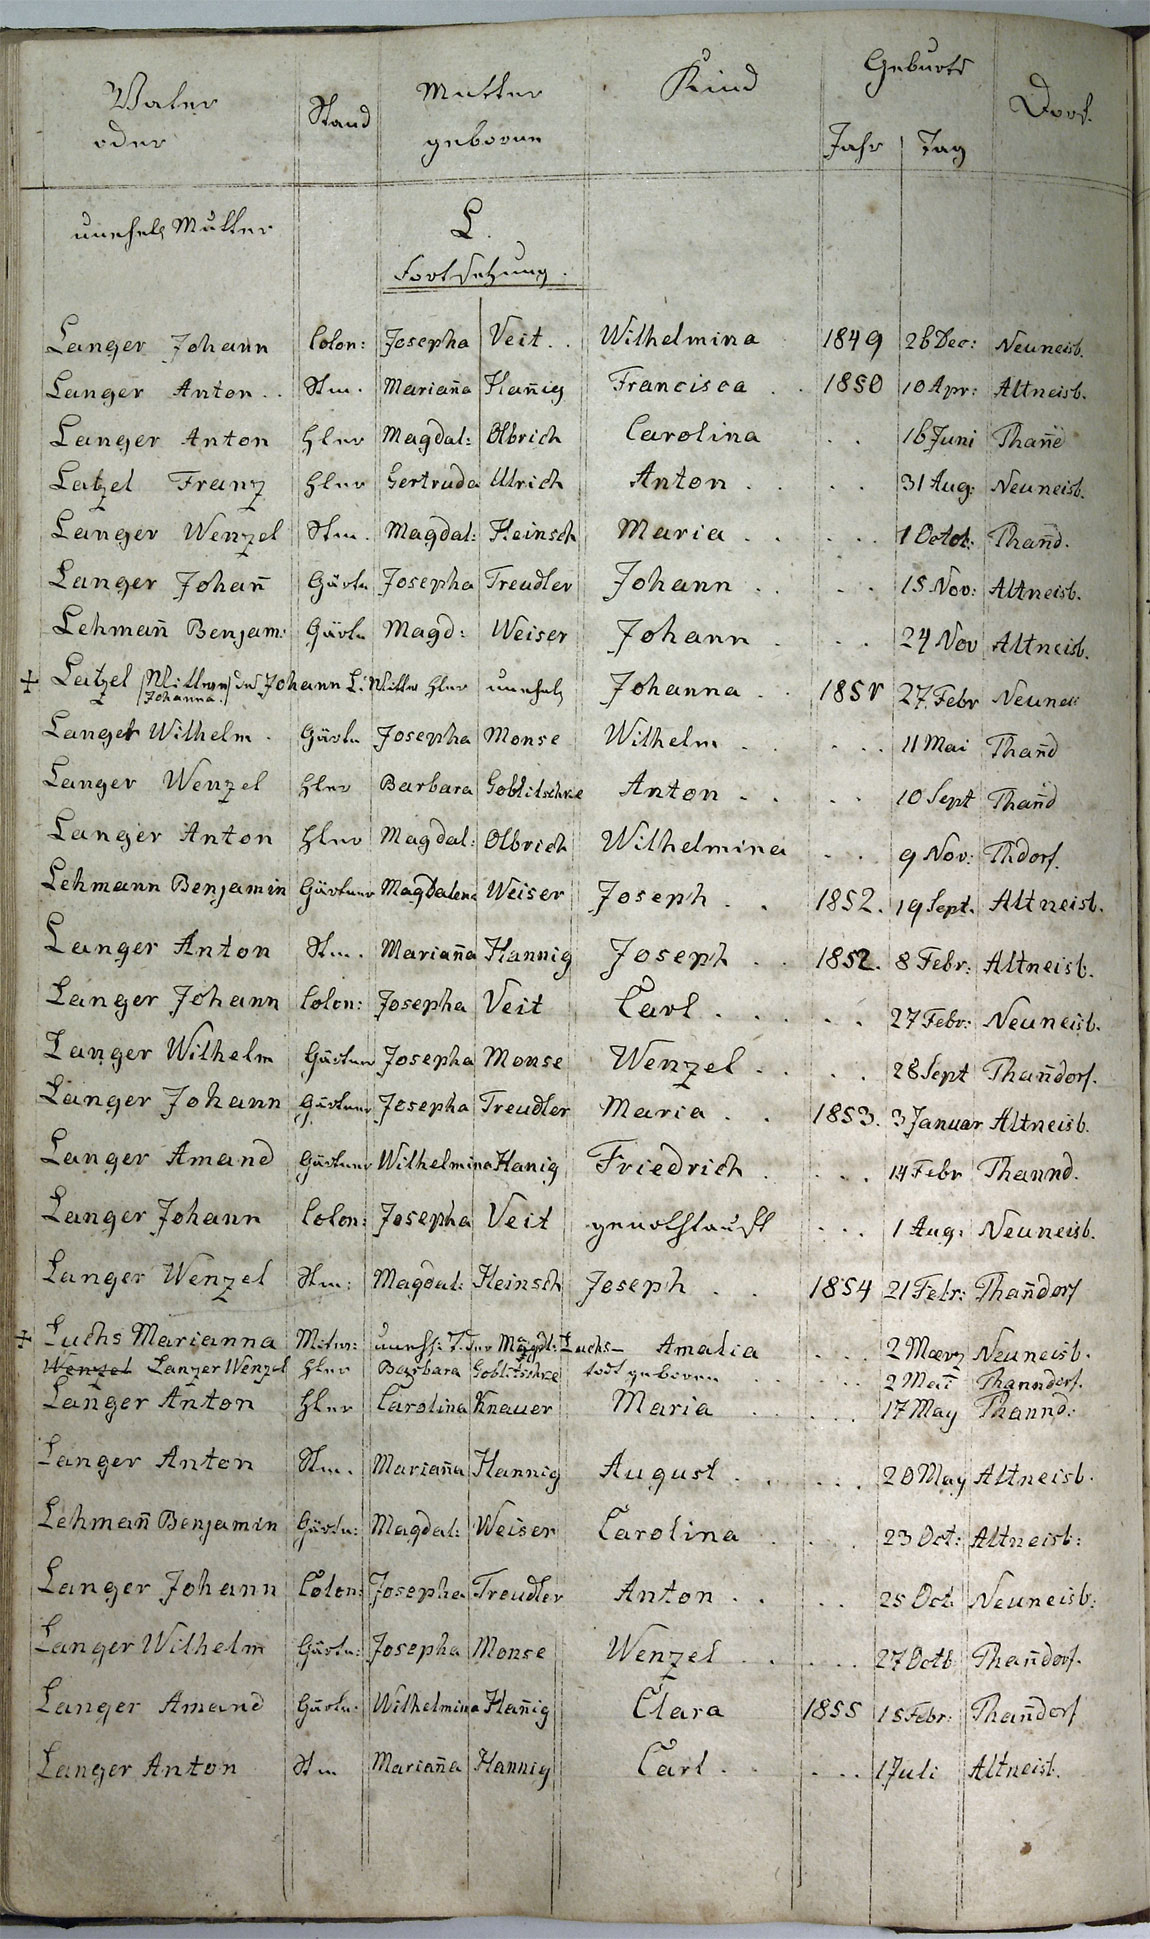 Vater
oder
Stand
Mutter
geborne
Kind
Geburts
Jahr Tag
Dorf.
unehel. Mutter
L.
Fortsetzung.
Langer Johann Colon: Josepha Veit . . Wilhelmina 1849 26 Dec: Neuneisb.
Langer Anton . . Stm. Mariañа Hañig Francisca . . 1850 10 Apr: Altneisb.
Langer Anton Hler Magdal: Olbrich Carolina . . 16 Juni Thañd
Latzel Franz Hler Gertruda Ulrich Anton . . . . 31 Aug: Neuneisb.
Langer Wenzel Stm. Magdal: Heinsch Maria . . . . . 1 Octob: Thañd.
Langer Johañ Gärtn Josepha Treudler Johann . . . . 15 Nov: Altneisb.
Lehmañ Benjam: Gärtn Magd: Weiser Johann . . . 24 Nov Altneisb.
+ Latzel Johanna des Johann L. Hler unehel Johanna . . 1851 27 Febr Neuneis
Langer Wilhelm . Gärtn Josepha Monse Wilhelm . . . . . 11 Mai Thañd
Langer Wenzel Hler Barbara Goblitschke Anton . . . . 10 Sept Thañd
Langer Anton Hler Magdal: Olbrich Wilhelmina . . . 9 Nov: Thdorf.
Lehmann Benjamin Gärtner Magdalena Weiser Joseph . . 1852. 19 Sept. Altneisb.
Langer Anton Stm. Mariaña Hannig Joseph . . 1852. 8 Febr: Altneisb.
Langer Johann Colon: Josepha Veit Carl . . . . . 27 Febr: Neuneisb.
Langer Wilhelm Gärtner Josepha Monse Wenzel . . . . 28 Sept Thañdorf.
Langer Johann Gärtner Josepha Treudler Maria . . 1853. 3 Januar Altneisb.
Langer Amand Gärtner Wilhelmina Hanig Friedrich . . . . 14 Febr Thannd.
Langer Johann Colon: Josepha Veit genothtauft . . . 1 Aug: Neuneisb.
Langer Wenzel Stm: Magdal: Heinsch Joseph . . 1854 21 Febr: Thañdorf
+ Luchs Marianna unehl: T. der Magdl: Luchs – Amalia . . . 2 Maerz Neuneisb.
Wenzel Langer Wenzel Hler Barbara Goblitschke todt geboren . . . . . 2 Mai Thanndorf.
Langer Anton Hler Carolina Knauer Maria . . . . . 17 May Thannd:
Langer Anton Stm. Mariaña Hannig August . . . . . 20 May Altneisb.
Lehmañ Benjamin Gärtn: Magdal: Weiser Carolina . . . . 23 Oct: Altneisb:
Langer Johann Colon: Josepha Treudler Anton . . . . 25 Oct. Neuneisb:
Langer Wilhelm Gärtn: Josepha Monse Wenzel . . . . . 27 Octb Thañdorf.
Langer Amand Gärtn: Wilhelmina Hañig Clara 1855 15 Febr: Thañdorf
Langer Anton Stm Mariaña Hannig Carl . . . . . 1 Juli Altneisb.